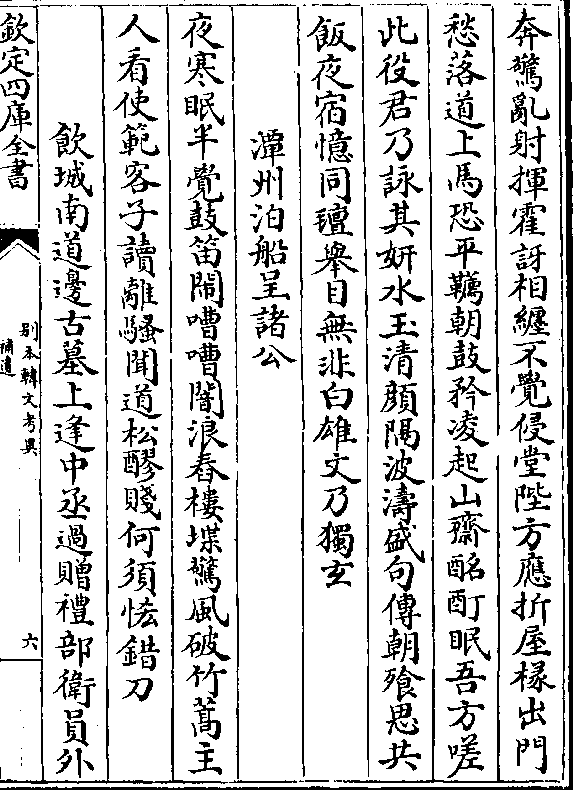 奔驚亂射揮霍訝相纏不覺侵堂陛方應折屋椽出門
愁落道上馬恐平韉朝鼓矜凌起山齋酩酊眠吾方嗟
此役君乃詠其妍水玉清顏隔波濤盛句傳朝飱思共
飯夜宿憶同氊舉目無非白雄文乃獨玄
潭州泊船呈諸公
夜寒眠半覺鼓笛鬧嘈嘈闇浪舂樓堞驚風破竹蒿主
人看使範客子讀離騷聞道松醪賤何須恡錯刀
飲城南道邊古墓上逢中丞過贈禮部衛員外
欽定四庫全書
别本韓文考異
補遺
六